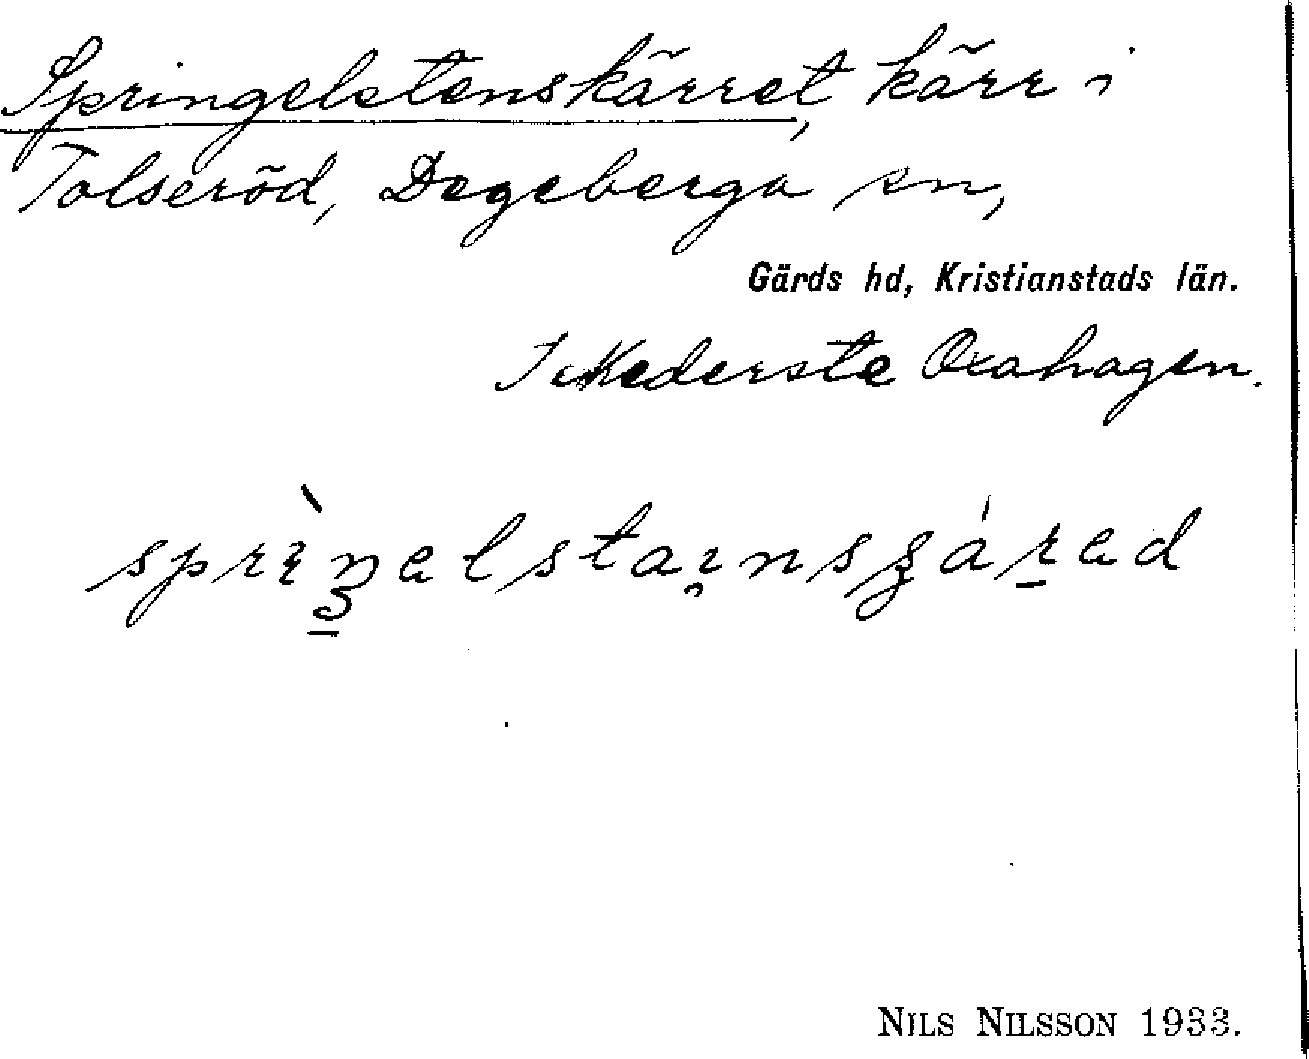 Springelstenskärret, kärr i
Tolseröd, Degeberga sn,
Gärds hd, Kristianstads län.
I Nederste Oxahagen.
NILS NILSSON 1933.